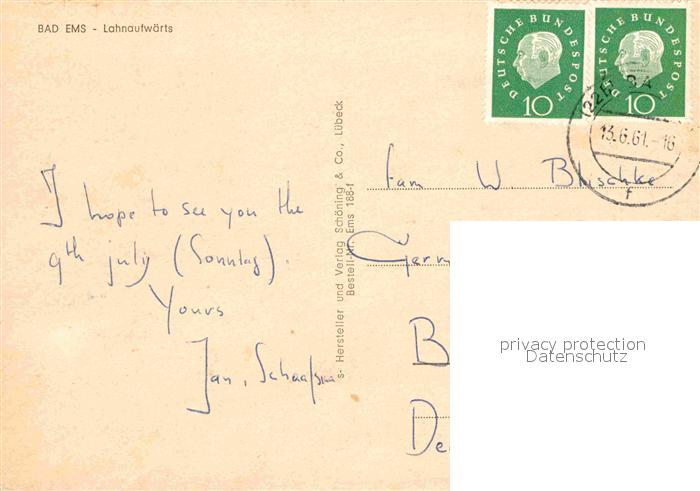 BAD EMS - Lahnaufwärts
DEUTSCHE BUNDESPOST
10
DEUTSCHE BUNDESPOST
10
13.6.61.-16
f
I hope to see you the
9th july (Sonntag).
Yours
Jan, Schaafsma
s- Hersteller und Verlag Schöning & Co., Lübeck
Bestell-Nr. Ems 188-f
fam W. Blischke
Germ
B
De
privacy protection
Datenschutz